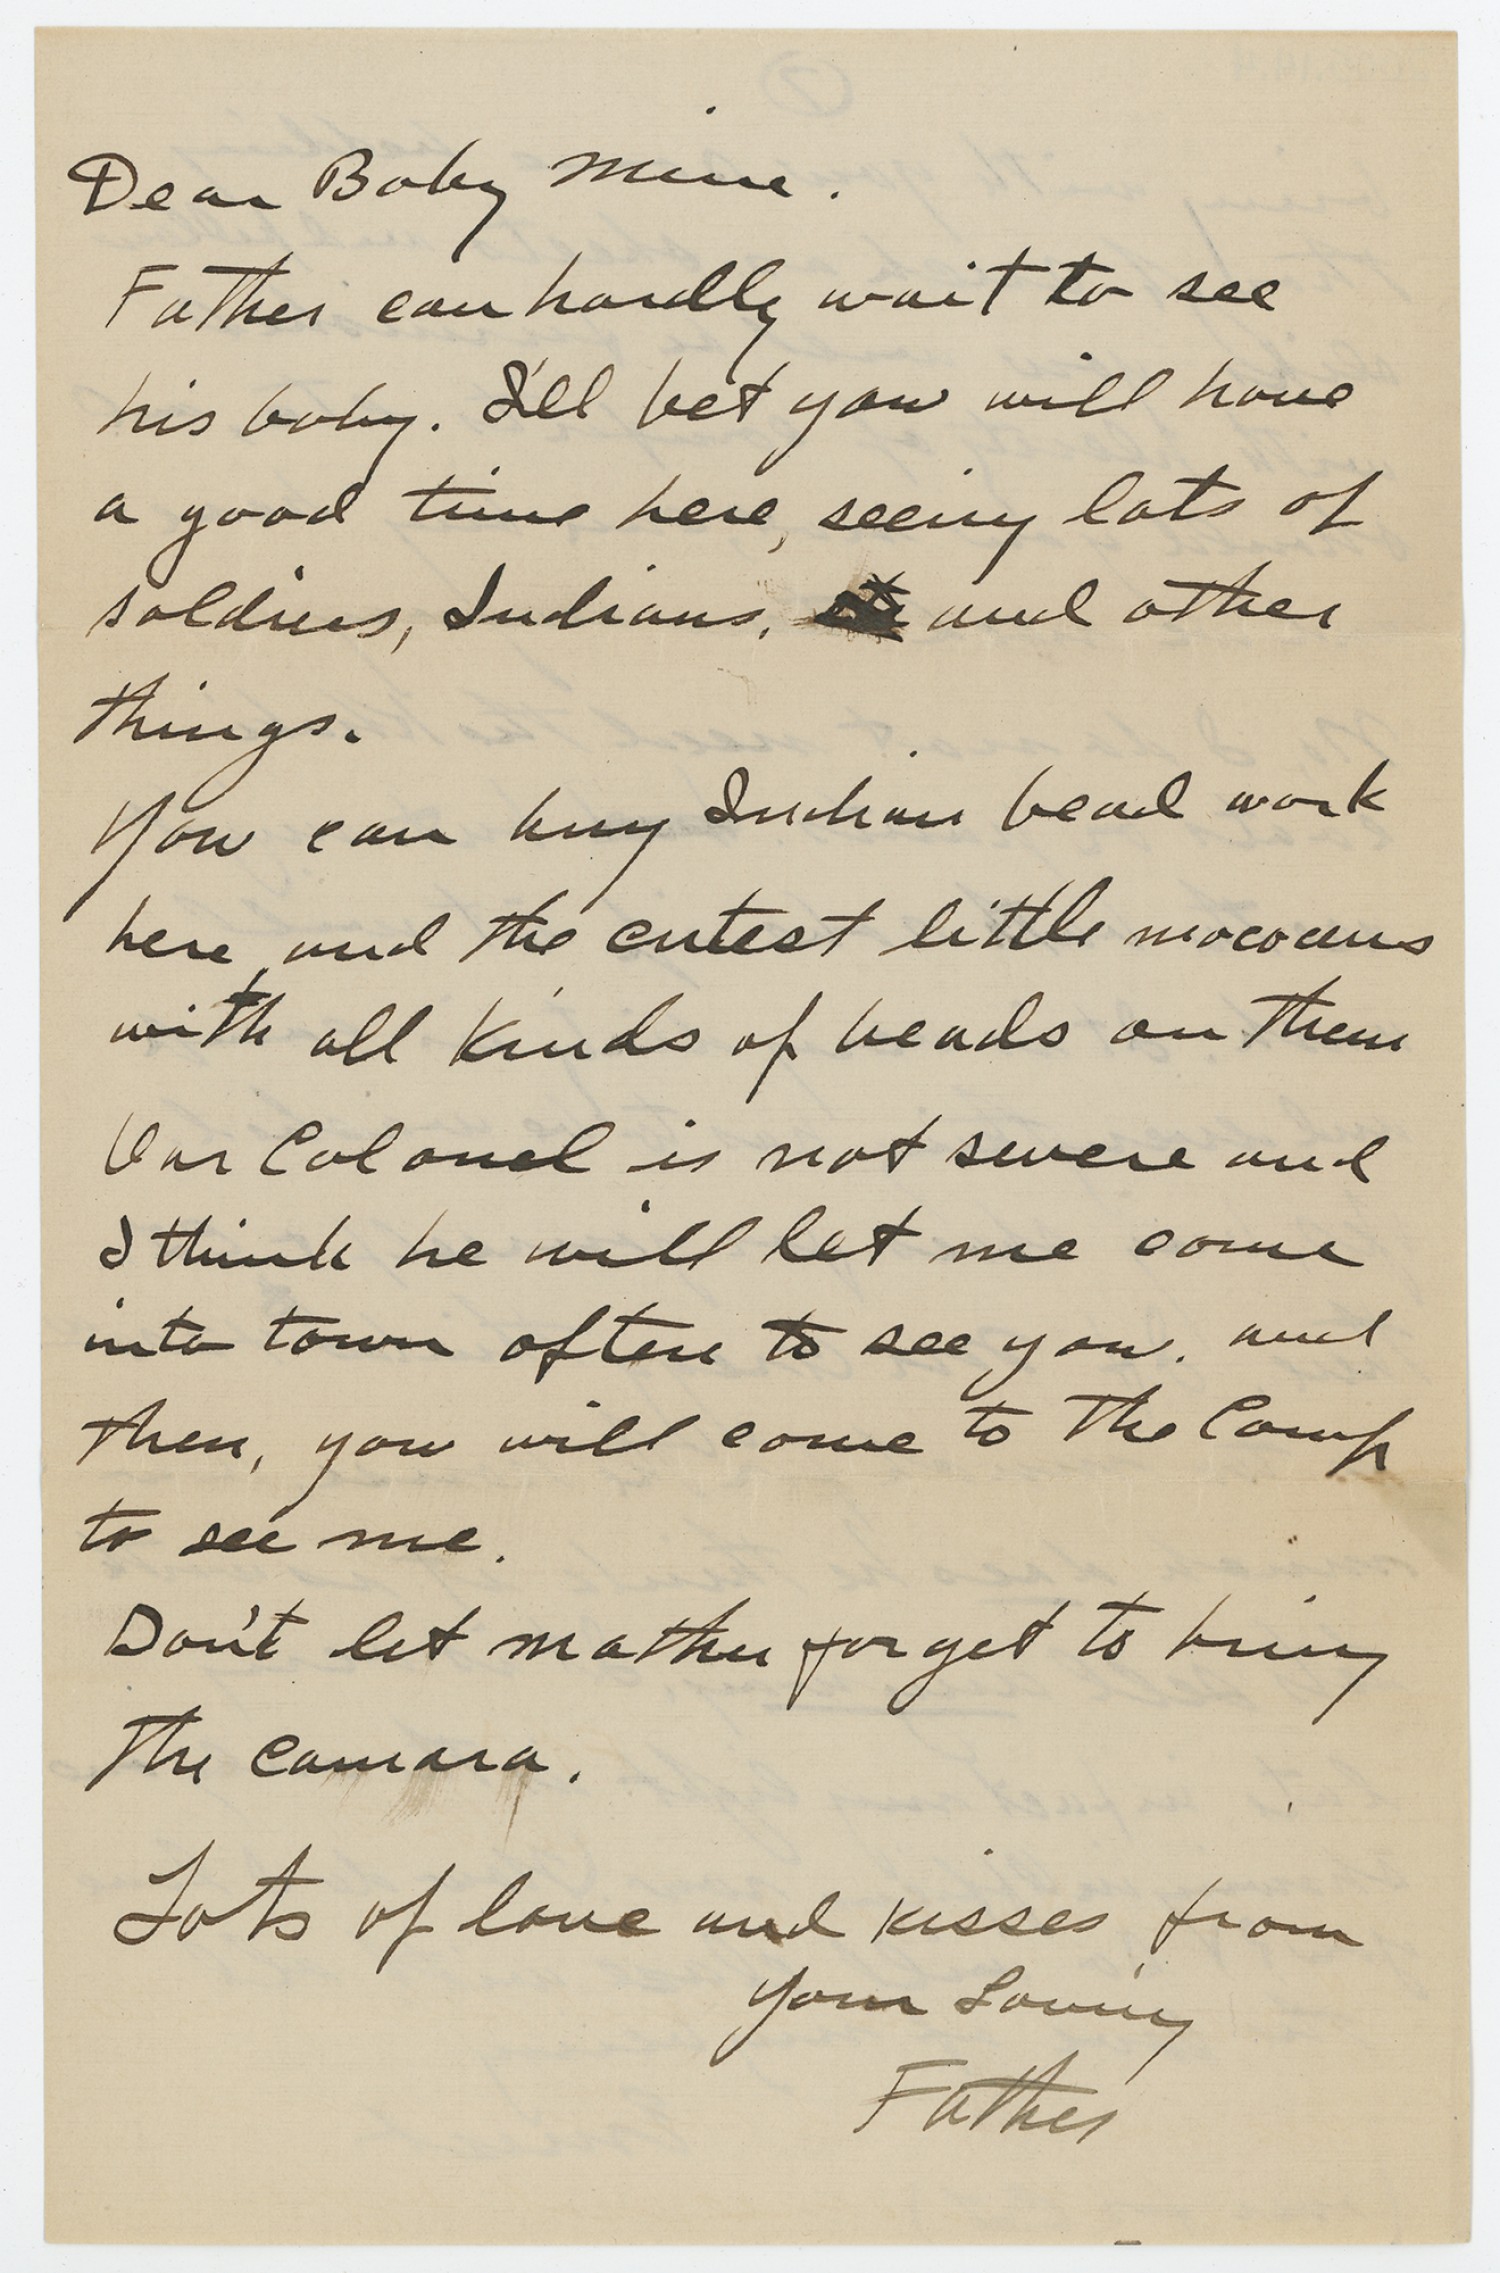 Dear Baby Mine.
Father can hardly wait to see
his baby. I'll bet you will have
a good time here, seeing lots of
soldiers, Indians, and other
things.
You can buy Indian bead work
here, and the cutest little mococcens
with all kinds of beads on them
Our Colonel is not severe and
I think he will let me come
into town often to see you. and
then, you will come to the Camp
to see me.
Don't let mother forget to bring
the camara.
Lots of love and kisses from
Your Loving
Father